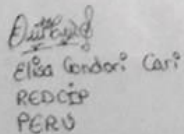 Elisa Condori Cari
REDCIP
PERU